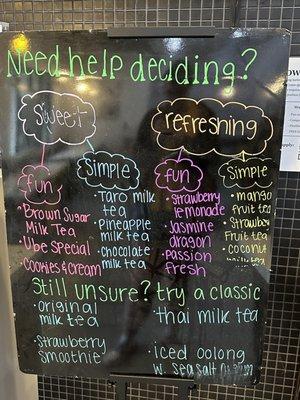 Need help deciding?
Sweet
refreshing
fun
Simple
fun
Simple
• Brown Sugar
Milk Tea
• Ube Special
• Cookies & Cream
• Taro milk
tea
• Pineapple
milk tea
• chocolate
milk tea
• Strawberry
lemonade
• Jasmine
dragon
• passion
fresh
• mango
fruit tea
• Strawberry
Fruit tea
• Coconut
milk tea
Still unsure? try a classic
• original
milk tea
• strawberry
smoothie
• thai milk tea
• iced oolong
w. Sea Salt